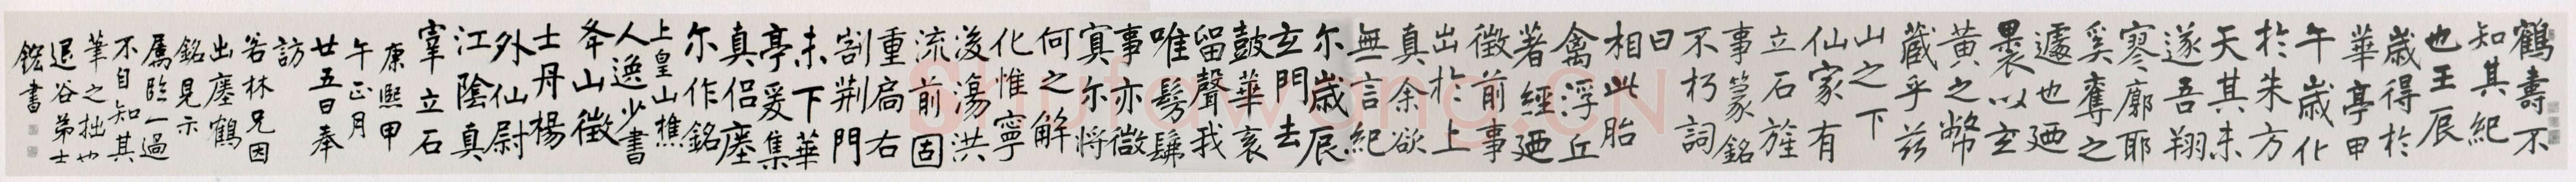 鶴壽不
知其紀
也壬辰
歲得於
華亭甲
午歲化
於朱方
天其未
遂吾翔
寥廓耶
奚奪之
遽也廼
裹以玄
黃之幣
藏乎茲
山之下
仙家有
立石旌
事篆銘
不朽詞
曰
相此胎
禽浮丘
著經廼
徵前事
出於上
真余欲
無言紀
尔歲辰
玄門去
鼓華表
留聲我
唯髣髴
事亦微
冥尔將
何之解
化惟寧
後蕩洪
流前固
重扃右
割荊門
未下華
亭爰集
真侶瘞
尔作銘
上皇山樵
人逸少書
夅山徵
士丹楊
外仙尉
江陰真
宰立石
康熙甲
午正月
廿五日奉
訪
若林兄因
出瘞鶴
銘見示
屬臨一過
不自知其
筆之拙也
退谷弟士
鋐書